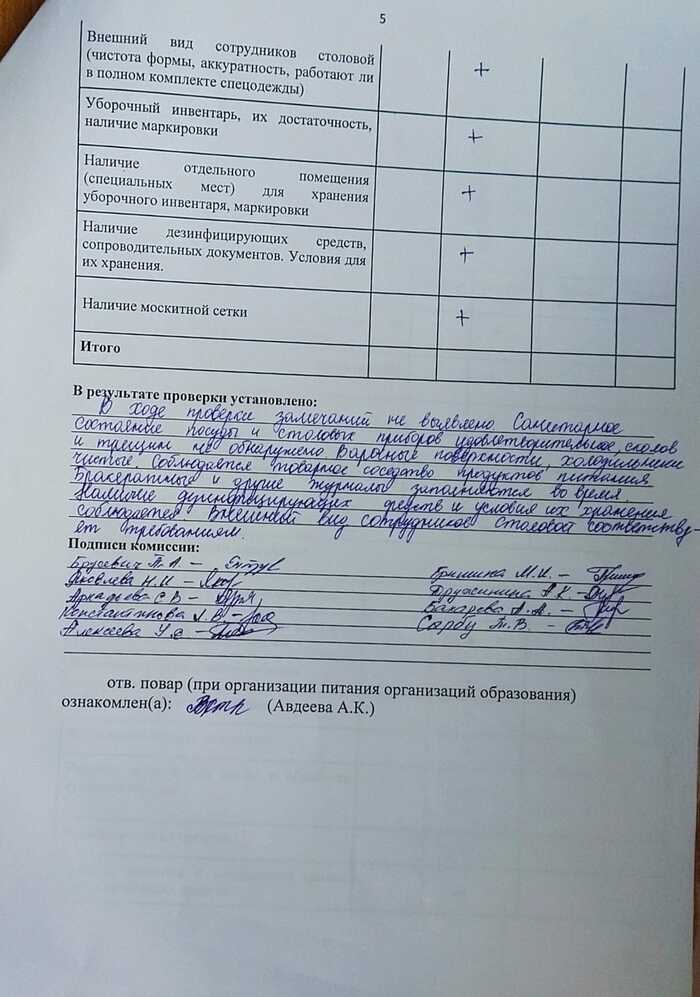 5
Внешний вид сотрудников столовой
(чистота формы, аккуратность, работают ли
в полном комплекте спецодежды)
+
Уборочный инвентарь, их достаточность,
наличие маркировки
+
Наличие отдельного помещения
(специальных мест) для хранения
уборочного инвентаря, маркировки
+
Наличие дезинфицирующих средств,
сопроводительных документов. Условия для
их хранения.
+
Наличие москитной сетки
+
Итого
В результате проверки установлено:
В ходе проверки замечаний не выявлено. Санитарное
состояние посуды и столовых приборов удовлетворительное, сколов
и трещин не обнаружено. Варочные поверхности, холодильники
чистые. Соблюдается товарное соседство продуктов питания.
Бракеражный и другие журналы заполняются во время.
Наличие дезинфицирующих средств и условия их хранения
соблюдается. Внешний вид сотрудников столовой соответству-
ет требованиям.
Подписи комиссии:
П.А. – Гришина М.И. –
Яковлева Н.И – А.К –
Аркадьева С.В – Бахарева А.А. –
Константинова Л.В – Сарбу Т.В. –
Алексеева У.В –
отв. повар (при организации питания организаций образования)
ознакомлен(а): (Авдеева А.К.)